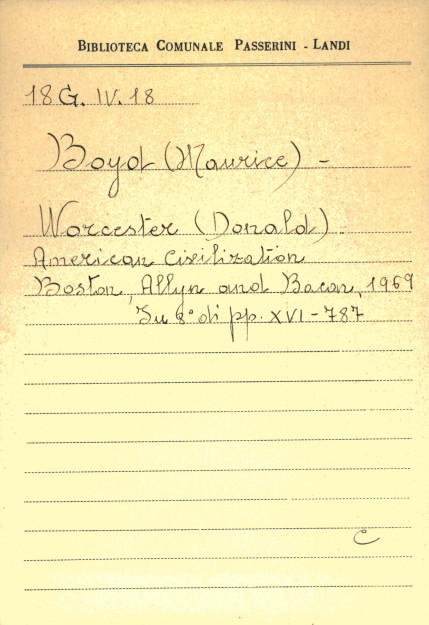 BIBLIOTECA COMUNALE PASSERINI - LANDI
18 G. IV. 18
Boyd (Maurice) -
Worcester (Donald) -
American Civilization
Boston, Allyn and Bacon, 1969
In 8° di pp. XVI - 787
C